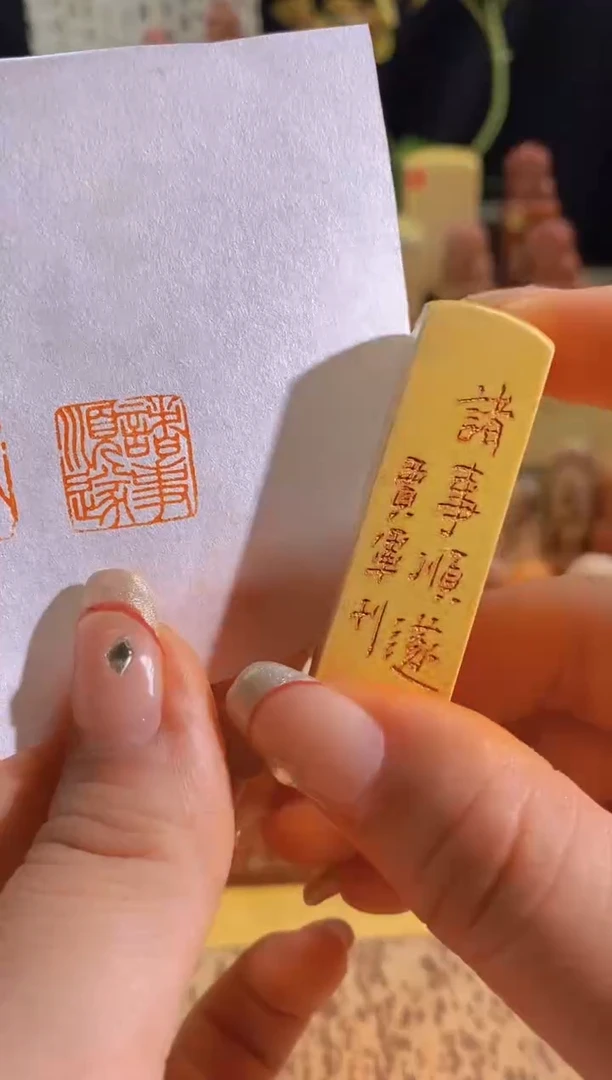 諸事
順遂
諸事順遂
刊